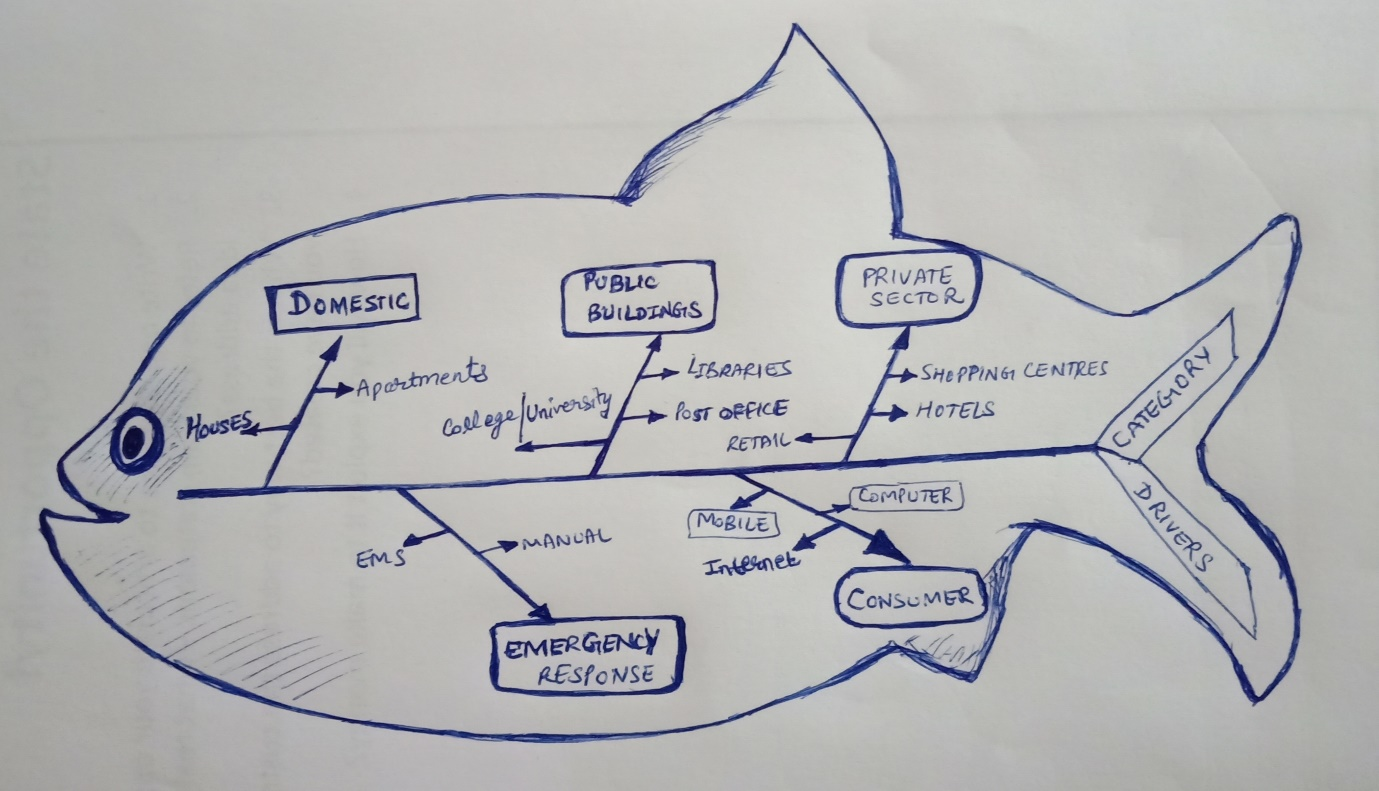 DOMESTIC
Apartments
HOUSES
PUBLIC
BUILDINGS
LIBRARIES
College/University
POST OFFICE
PRIVATE
SECTOR
SHOPPING CENTRES
HOTELS
RETAIL
CATEGORY
DRIVERS
EMS
MANUAL
EMERGENCY
RESPONSE
MOBILE
COMPUTER
Internet
CONSUMER